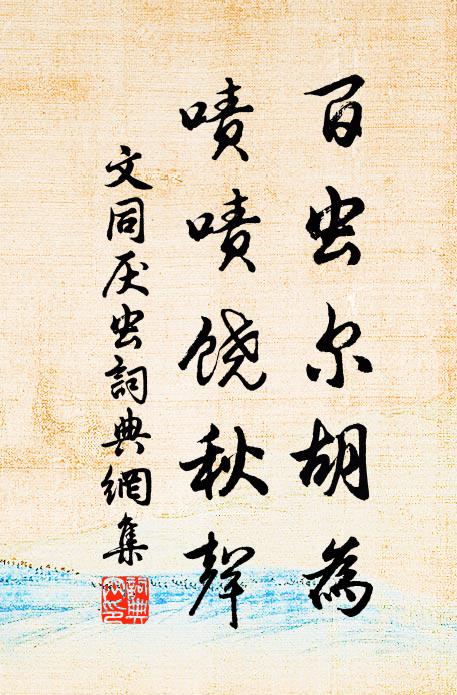 百虫尔胡为
啧啧饶秋声
文同厌虫詞典網集